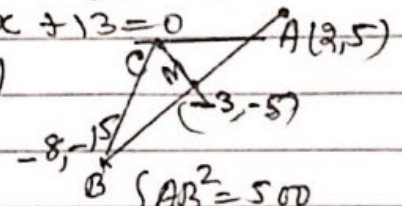 x + 13 = 0
A(2,5)
C
M
(-3,-5)
-8,-15
B
AB² = 500